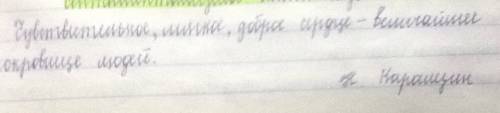 Чувствительное, мягкое, доброе сердце – величайшее
сокровище людей.
Н Карамзин